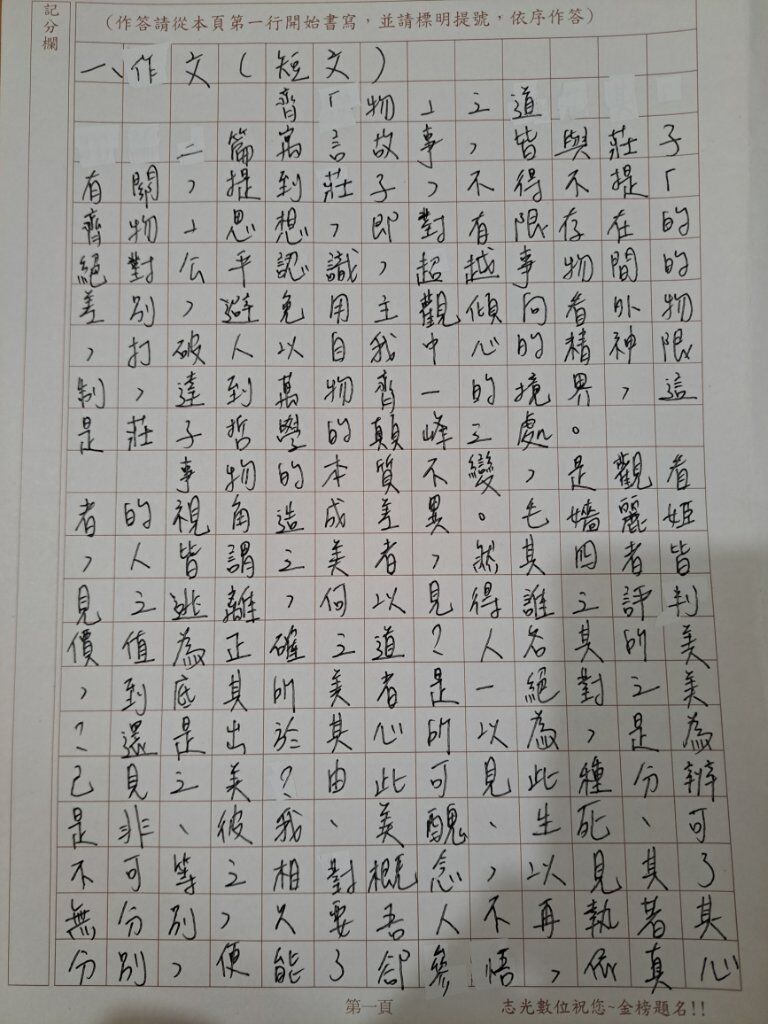 記分欄
（作答請從本頁第一行開始書寫，並請標明提號，依序作答）
一、作文（短文）
齊「物」之道
二篇寓言故事，皆與莊子
有關，提到莊子，不得不提「
齊物」思想，即對有限存在的
絕對公平認識，超越事物間的
差別，避免用主觀傾向看外物
，打破人以自我中心的精神限
制，達到萬物齊一的境界，這
是莊子哲學的顛峰之處。
事物的本質不變，是觀看
者的視角造成差異。毛嬙麗姬
，人皆謂之美者，然其四者皆
見之逃離，何以見得誰之評判
價值為正確之道？人名其所美
，到底其所美者是一絕對之美
？還是出於其心所以為，是為
己見之美？由此可見此種分辨
是非、彼我、美醜、生死、可
不可等之相對概念，以見其了
無分別，只要吾人不再執著其
分別，便能了卻參悟，依真心
第一頁
志光數位祝您~金榜題名!!